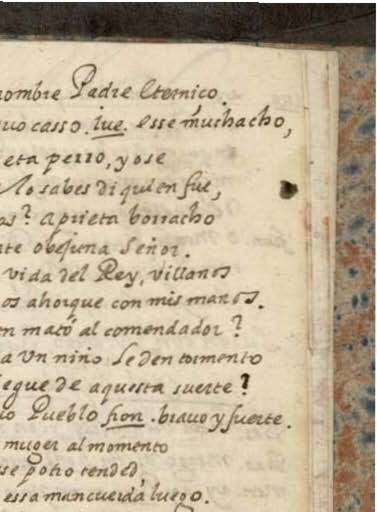 nombre Padre eternico.
casso. jue. esse muchacho,
perro, y ose
lo sabes di quien fue,
as? aprieta borracho
nte obejuna Señor.
vida del Rey, villanos
os ahorque con mis manos.
en mató al comendador?
a Un niño le den tormento
iegue de aquesta suerte?
Pueblo fron. bravo y fuerte.
muger al momento
se potro tended,
essa mancuerda luego.